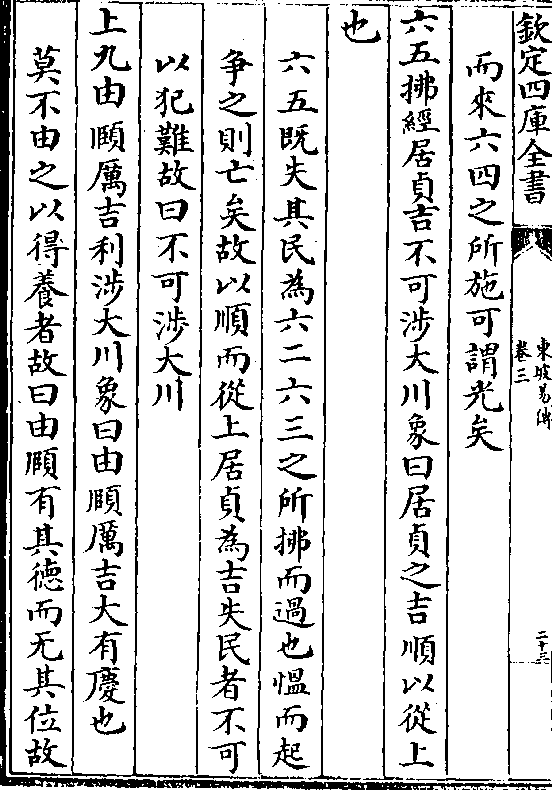 欽定四庫全書
東坡易傳
卷三
二十三
而來六四之所施可謂光矣
六五拂經居貞吉不可涉大川象曰居貞之吉順以從上
也
六五既失其民為六二六三之所拂而過也慍而起
争之則亡矣故以順而從上居貞為吉失民者不可
以犯難故曰不可涉大川
上九由頤厲吉利涉大川象曰由頤厲吉大有慶也
莫不由之以得養者故曰由頤有其德而无其位故